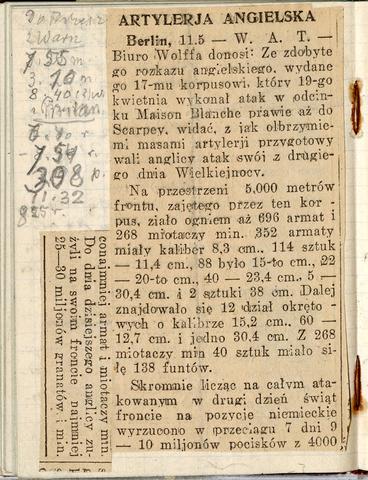 7.55 m
3.10 m
ARTYLERJA ANGIELSKA
Berlin, 11.5 — W. A. T. —
Biuro Wolffa donosi: Ze zdobyte
go rozkazu angielskiego, wydane
go 17-mu korpusowi, który 19-go
kwietnia wykonał atak w odcin-
ku Maison Blanche prawie aż do
Scarpey, widać, z jak olbrzymie-
mi masami artylerji przygotowy
wali anglicy atak swój z drugie-
go dnia Wielkiejnocy.
Na przestrzeni 5,000 metrów
frontu, zajętego przez ten kor-
pus, ziało ogniem aż 696 armat i
268 miotaczy min. 352 armaty
miały kaliber 8,3 cm., 114 sztuk
— 11,4 cm., 88 było 15-to cm., 22
— 20-to cm., 40 — 23,4 cm., 5 —
30,4 cm. i 2 sztuki 38 cm. Dalej
znajdowało się 12 dział okręto -
wych o kalibrze 15,2 cm., 60 —
12,7 cm. i jedno 30,4 cm. Z 268
miotaczy min 40 sztuk miało si-
łę 138 funtów.
Skromnie licząc na całym ata-
kowanym w drugi dzień świąt
froncie na pozycje niemieckie
wyrzucono w przeciągu 7 dni 9
— 10 miljonów pocisków z 4000
conajmniej armat i miotaczy min.
Do dnia dzisiejszego anglicy zu-
żyli na swoim froncie najmniej
25—30 miljonów granatów i min.